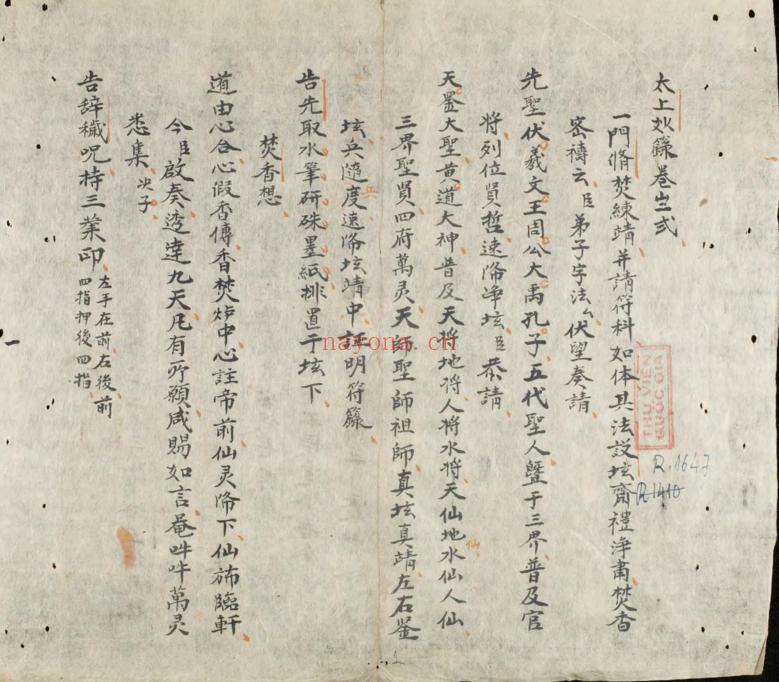 太上妙籙卷𡴯弍
一門脩焚練靖并請符科如体其法設坛齋禮浄肅焚香
密禱云臣弟子字法厶伏望奏請
先聖伏羲文王周公大禹孔子五代聖人曁于三界普及官
將列位賢哲速降净坛臣恭請
天罡大聖黄道大神普及天將地將人將水將天仙地水仙人仙
仙
三界聖賢四府萬灵天師聖師祖師真坛真靖左右鉴
坛兵隨度速降坛靖中証明符籙
兵
告先取水筆研硃墨紙排置于坛下
焚香想
道由心合心假香傳香焚炉中心註帝前仙灵降下仙斾臨軒
今臣啟奏透達九天凡有所願咸賜如言菴吽吽萬灵
悉集次子
告辞穢呪持三業印左手在前右後前
四指押後四指
THƯ VIỆN
QUỐC GIA
R.1647
R1410
nayona.cn